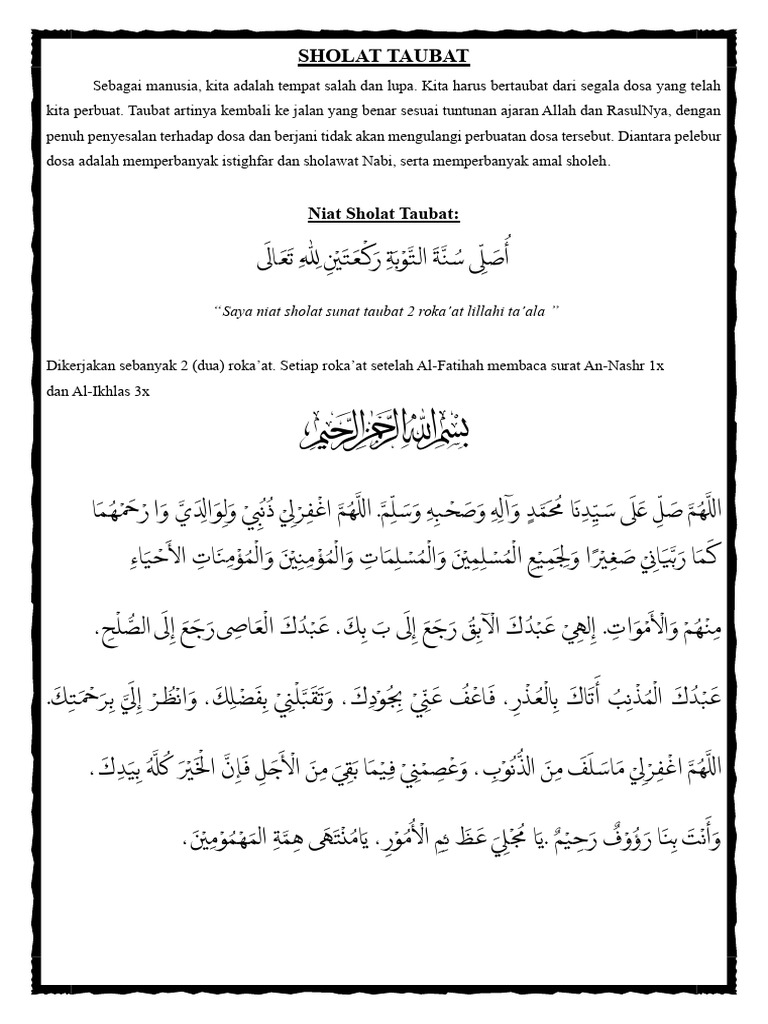 SHOLAT TAUBAT
Sebagai manusia, kita adalah tempat salah dan lupa. Kita harus bertaubat dari segala dosa yang telah
kita perbuat. Taubat artinya kembali ke jalan yang benar sesuai tuntunan ajaran Allah dan RasulNya, dengan
penuh penyesalan terhadap dosa dan berjani tidak akan mengulangi perbuatan dosa tersebut. Diantara pelebur
dosa adalah memperbanyak istighfar dan sholawat Nabi, serta memperbanyak amal sholeh.
Niat Sholat Taubat:
أُصَلِّى سُنَّةَ التَّوْبَةِ رَكْعَتَيْنِ لِلّٰهِ تَعَالَى
“Saya niat sholat sunat taubat 2 roka’at lillahi ta’ala ”
Dikerjakan sebanyak 2 (dua) roka’at. Setiap roka’at setelah Al-Fatihah membaca surat An-Nashr 1x
dan Al-Ikhlas 3x
بِسْمِ اللّٰهِ الرَّحْمٰنِ الرَّحِيْمِ
اللَّهُمَّ صَلِّ عَلَى سَيِّدِنَا مُحَمَّدٍ وَآلِهِ وَصَحْبِهِ وَسَلِّمَّ. اللَّهُمَّ اغْفِرْلِيْ ذُنُبِيْ وَلِوَالِدَيَّ وَا رْحَمْهُمَا
كَمَا رَبَّيَانِيْ صَغِيْرًا وَلِجَمِيْعِ الْمُسْلِمِيْنَ وَالْمُسْلِمَاتِ وَالْمُؤْمِنِيْنَ وَالْمُؤْمِنَاتِ الأَحْيَاءِ
مِنْهُمْ وَالْأَمْوَاتِ. إِلهِيْ عَبْدُكَ الْآبِقُ رَجَعَ إِلَى بَ بِكَ، عَبْدُكَ الْعَاصِى رَجَعَ إِلَى الصُّلْحِ،
عَبْدُكَ الْمُذْنِبُ أَتَاكَ بِالْعُذْرِ، فَاعْفُ عَنِّيْ بِجُودِكَ، وَتَقَبَّلْنِيْ بِفَضْلِكَ، وَانْظُرْ إِلَيَّ بِرَحْمَتِكَ.
اللَّهُمَّ اغْفِرْلِيْ مَاسَلَفَ مِنَ الذُّنُوْبِ، وَعْصِمْنِيْ فِيْمَا بَقِيَ مِنَ الْأَجَلِ فَإِنَّ الْخَيْرَ كُلَّهُ بِيَدِكَ،
وَأَنْتَ بِنَا رَؤُوْفٌ رَحِيْمٌ .يَا مُجْلِيَ عَظَ ئِمِ الْأُمُوْرِ، يَامُنْتَهَى هِمَّةِ المَهْمُوْمِيْنَ،